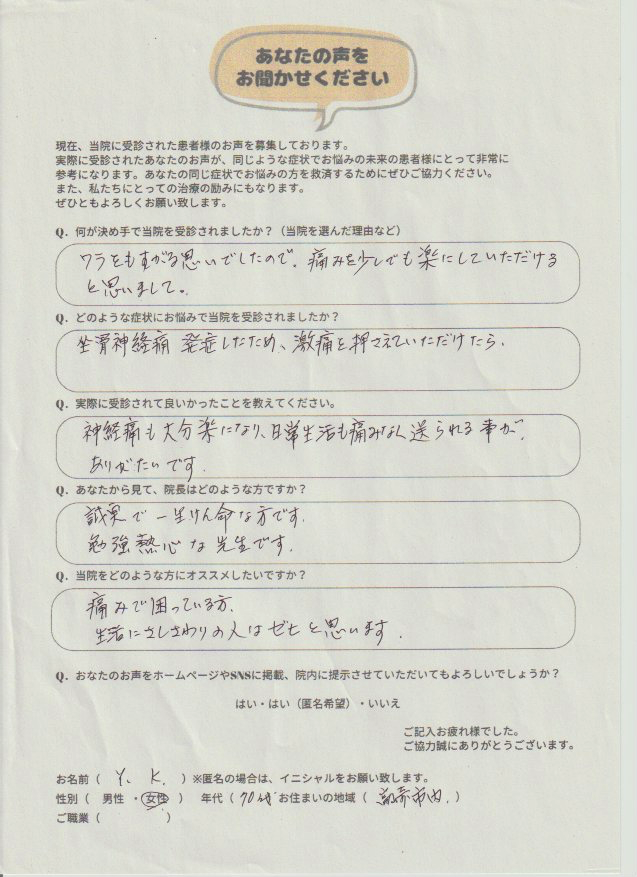 あなたの声を
お聞かせください
現在、当院に受診された患者様のお声を募集しております。
実際に受診されたあなたのお声が、同じような症状でお悩みの未来の患者様にとって非常に
参考になります。あなたの同じ症状でお悩みの方を救済するためにぜひご協力ください。
また、私たちにとっての治療の励みにもなります。
ぜひともよろしくお願い致します。
Q. 何が決め手で当院を受診されましたか?(当院を選んだ理由など)
ワラをもすがる思いでしたので。痛みを少しでも楽にしていただける
と思いまして。
Q. どのような症状にお悩みで当院を受診されましたか?
坐骨神経痛 発症したため、激痛を押さえていただけたら.
Q. 実際に受診されて良いかったことを教えてください。
神経痛も大分楽になり、日常生活も痛みなく送られる事が、
ありがたいです.
Q. あなたから見て、院長はどのような方ですか?
誠実で一生けん命な方です.
勉強熱心な先生です.
Q. 当院をどのような方にオススメしたいですか?
痛みで困っている方.
生活にさしさわりの人はぜひと思います.
Q. おなたのお声をホームページやSNSに掲載、院内に提示させていただいてもよろしいでしょうか?
はい・はい(匿名希望)・いいえ
ご記入お疲れ様でした。
ご協力誠にありがとうございます。
お名前( Y. K. )※匿名の場合は、イニシャルをお願い致します。
性別( 男性 ・女性 ) 年代( 70才 お住まいの地域( 市内. )
ご職業( )